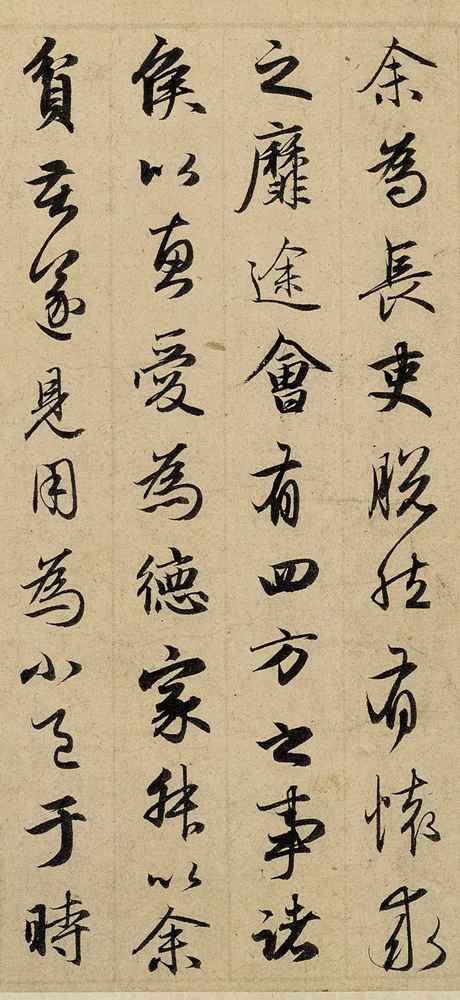 余為長吏脱然有懷求
之靡途會有四方之事諸
侯以惠愛為德家叔以余
貧苦遂見用為小邑于時